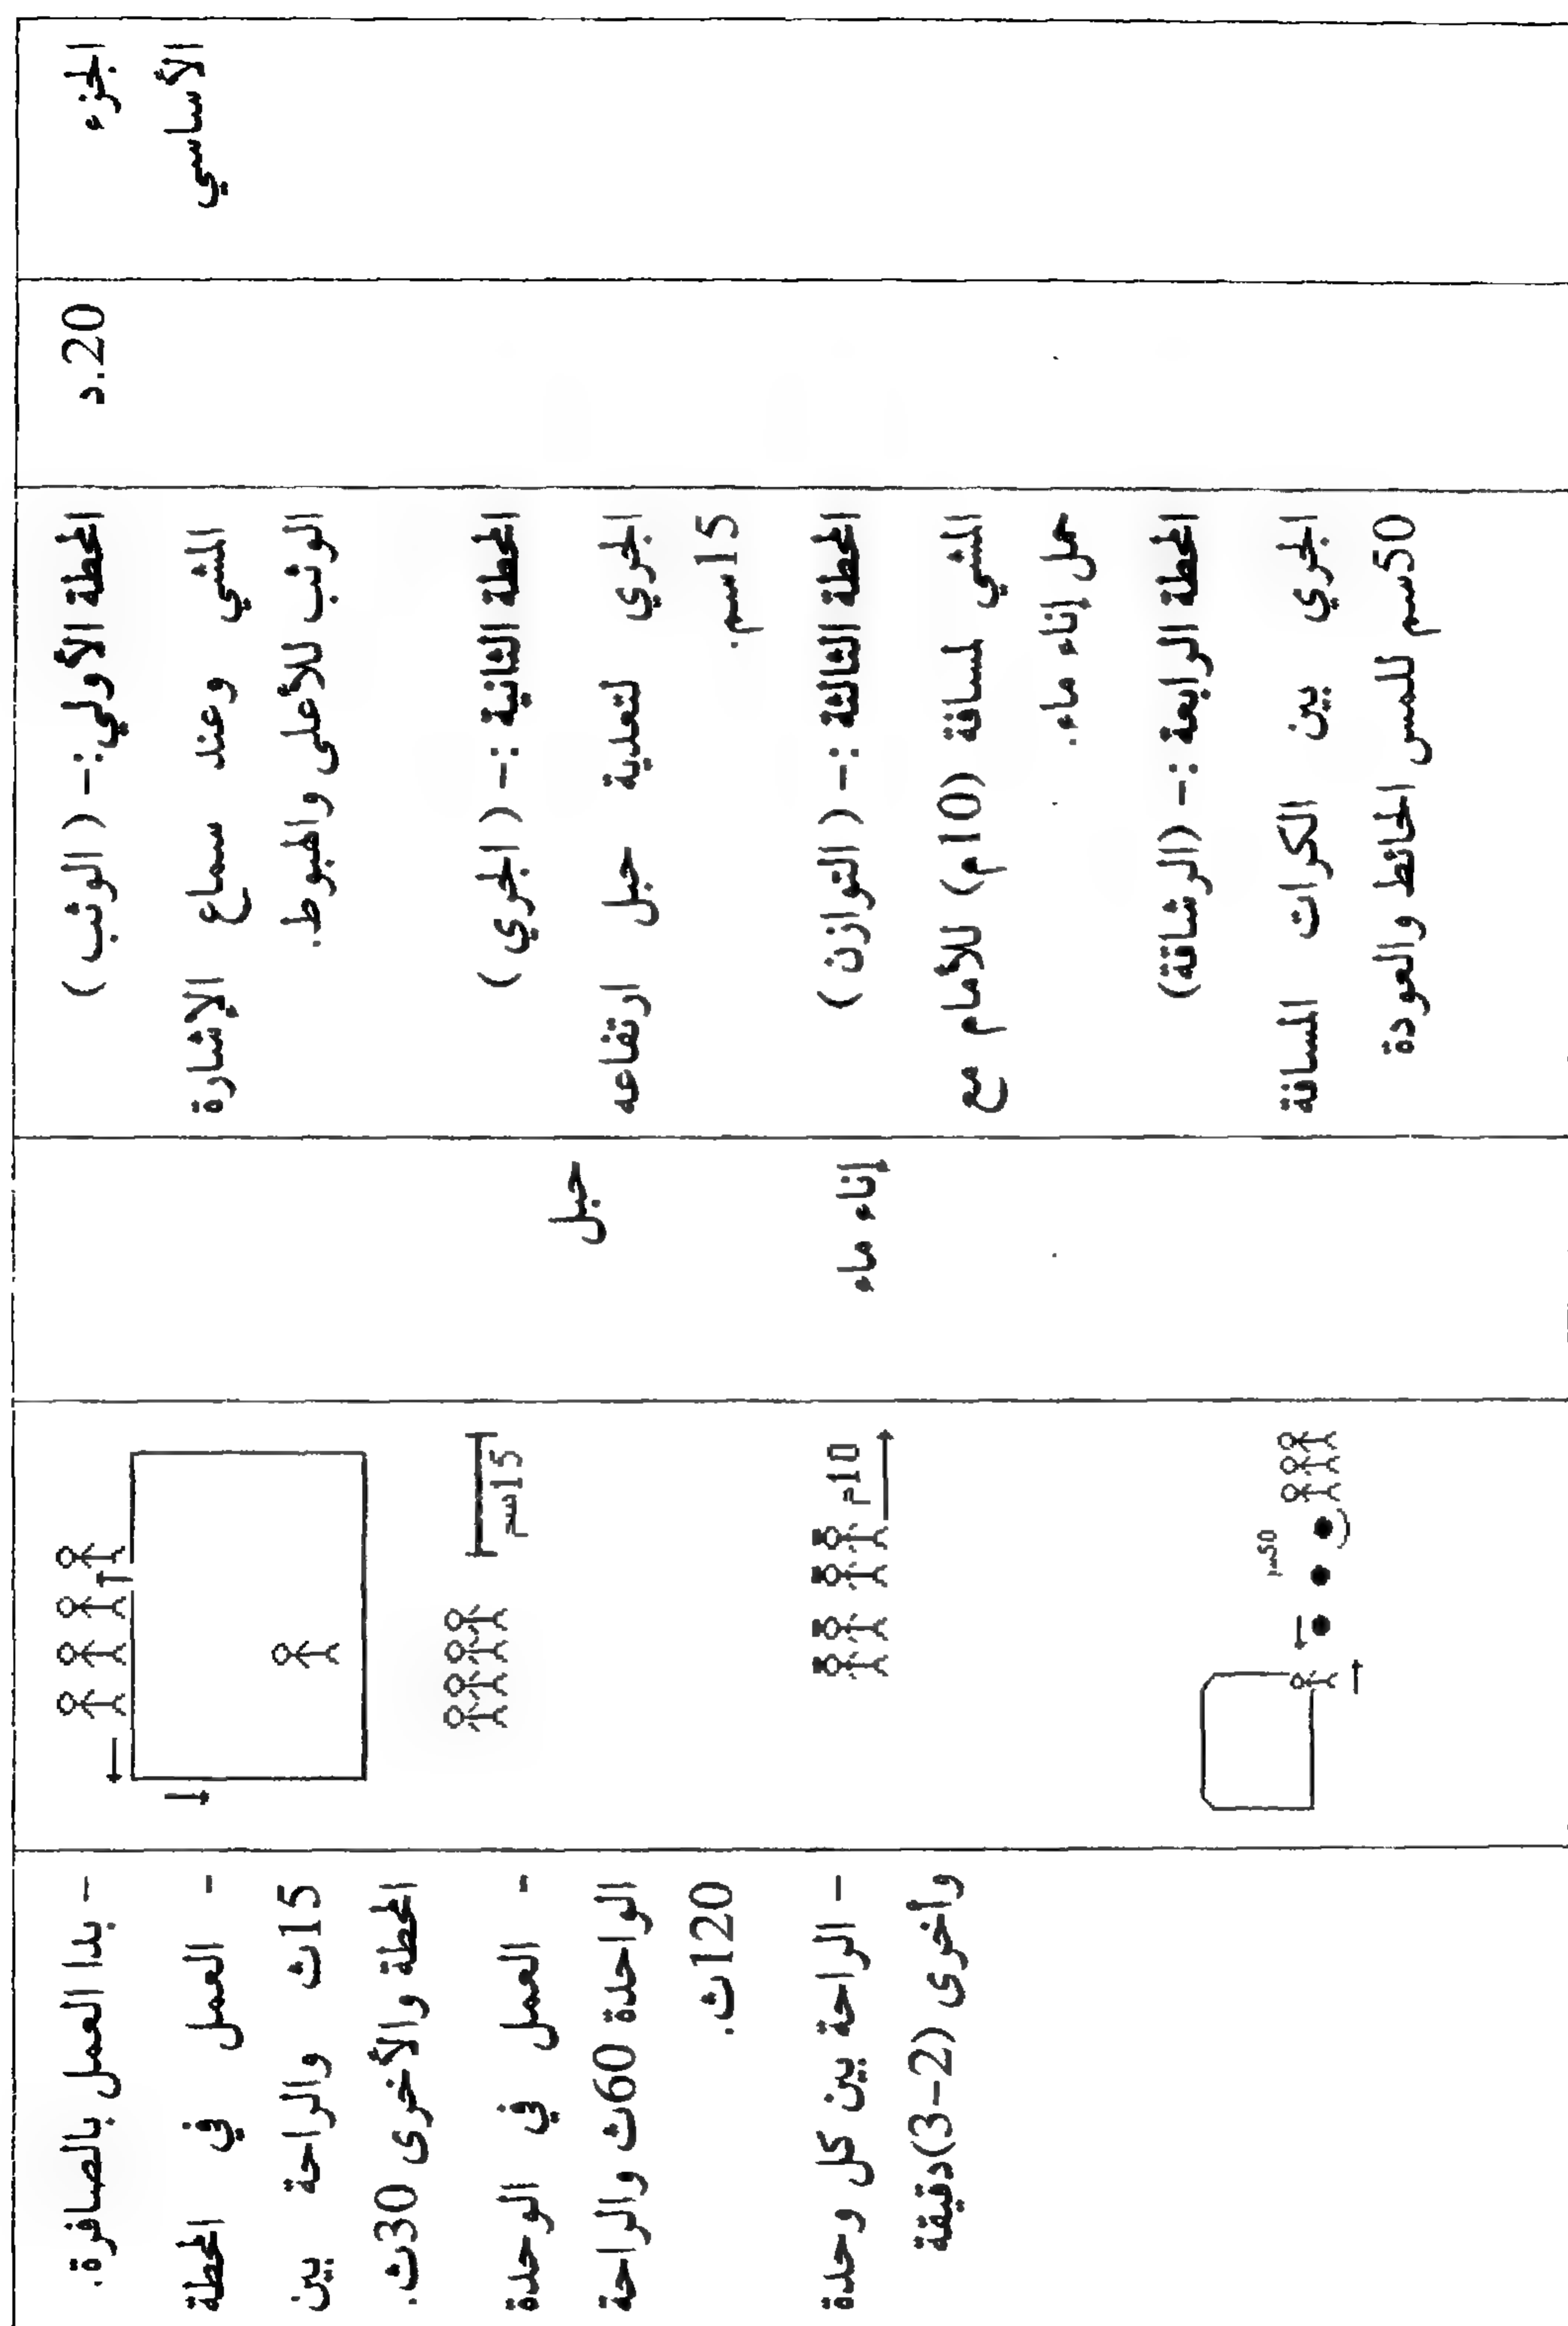 الجزء
الأساسي
20.د
المحطة الأولي:- ( الوثب )
المشي وعند سماع الإشارة
الوثب للأعلى والهبوط.
المحطة الثانية :- ( الجري )
الجري لتعدية حبل ارتفاعه
15سم.
المحطة الثالثة :- ( التوازن )
المشي لمسافة (10م) للأمام مع
حمل إناء ماء.
المحطة الرابعة :- (الرشاقة)
الجري بين الكرات المسافة
50سم للمس الحائط والعودة
حبل
إناء ماء
15سم
10م
50سم
- بدا العمل بالصافرة.
- العمل في المحطة
15ث والراحة بين
المحطة والأخرى 30ث.
- العمل في الوحدة
الواحدة 60ث والراحة
120ث.
- الراحة بين كل وحدة
وأخرى (2-3)دقيقة